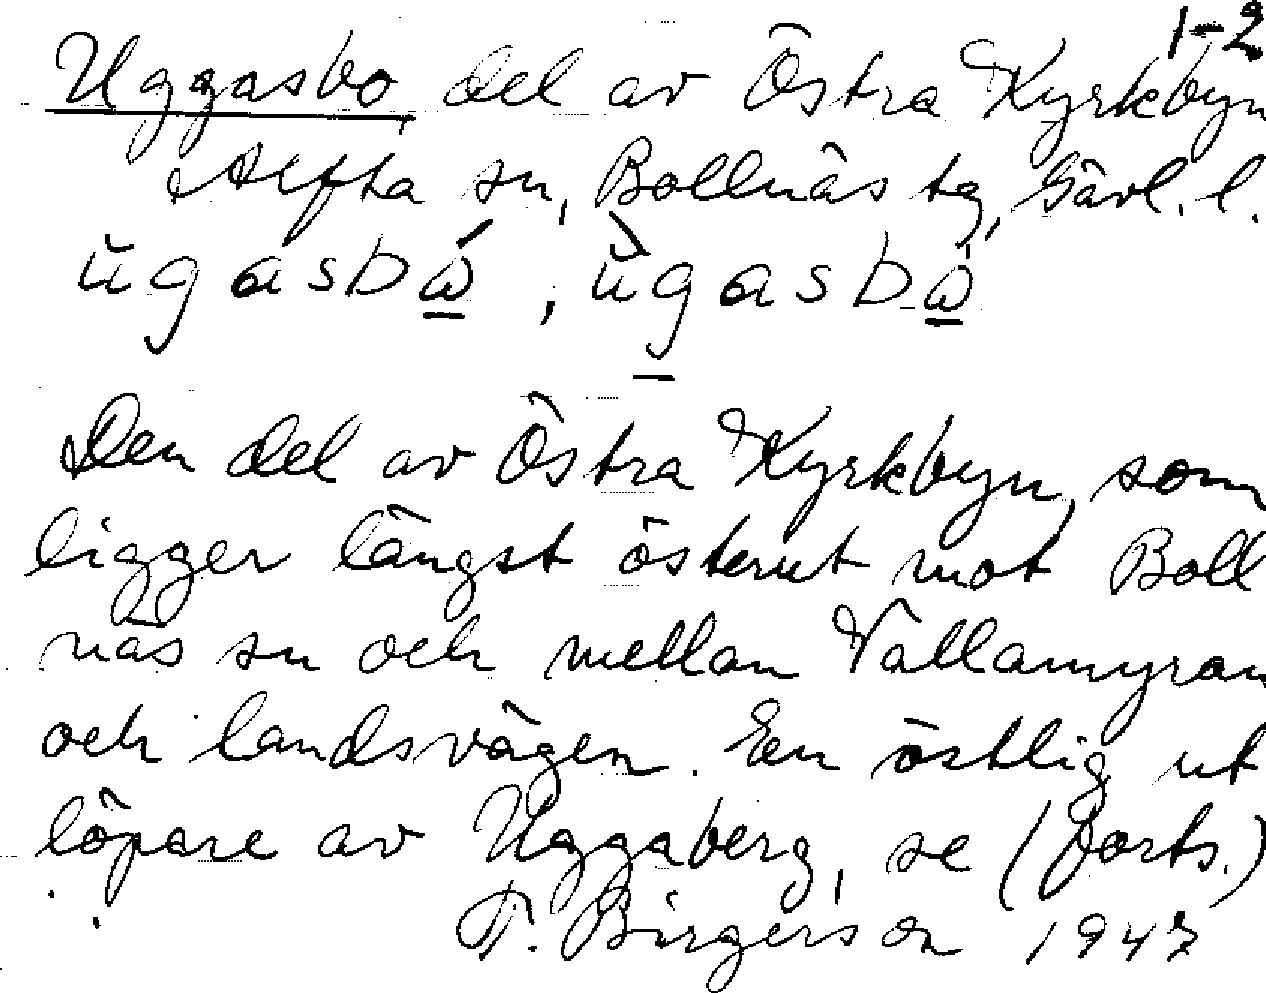 1-2
Uggasbo, del av Östra Kyrkbyn
Alfta sn, Bollnäs tg, Gävl. l.
Den del av Östra Kyrkbyn, som
ligger längst österut mot Boll
näs sn och mellan Vallamyran
och landsvägen. En östlig ut
löpare av Uggaberg, se (forts.)
F. Birgerson 1947